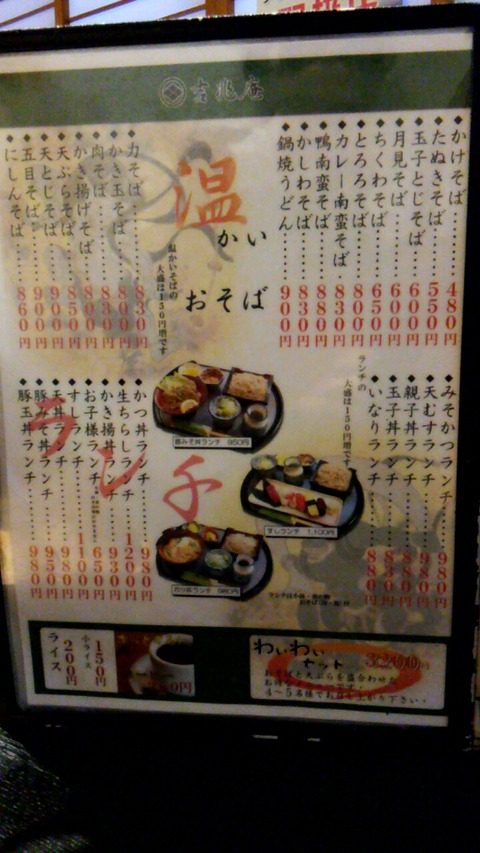 吉兆庵
温かいおそば
かけそば 480円
たぬきそば 550円
玉子とじそば
月見そば 600円
ちくわそば 650円
とろろそば 800円
カレー南蛮そば 830円
鴨南蛮そば 880円
かしわそば 830円
鍋焼うどん 900円
力そば 830円
かき玉そば 800円
肉そば 830円
かき揚げそば 800円
天ぷらそば 850円
天とじそば 900円
五目そば 900円
にしんそば 860円
温かいそばの
大盛は150円増です
ランチ
ランチの
大盛は150円増です
みそかつランチ 980円
天むすランチ 980円
親子丼ランチ 880円
玉子丼ランチ
いなりランチ 880円
かつ丼ランチ 980円
生ちらしランチ 1200円
かき揚丼ランチ 930円
お子様ランチ 650円
すしランチ 1100円
天丼ランチ 980円
豚みそ丼ランチ 950円
豚玉丼ランチ 980円
豚みそ丼ランチ 950円
すしランチ 1,100円
カツ丼ランチ 980円
小ライス 150円
ライス 200円
わいわいセット 3200円
おそばと天ぷらを盛合わせた
4~5名様でお召し上がり下さい。